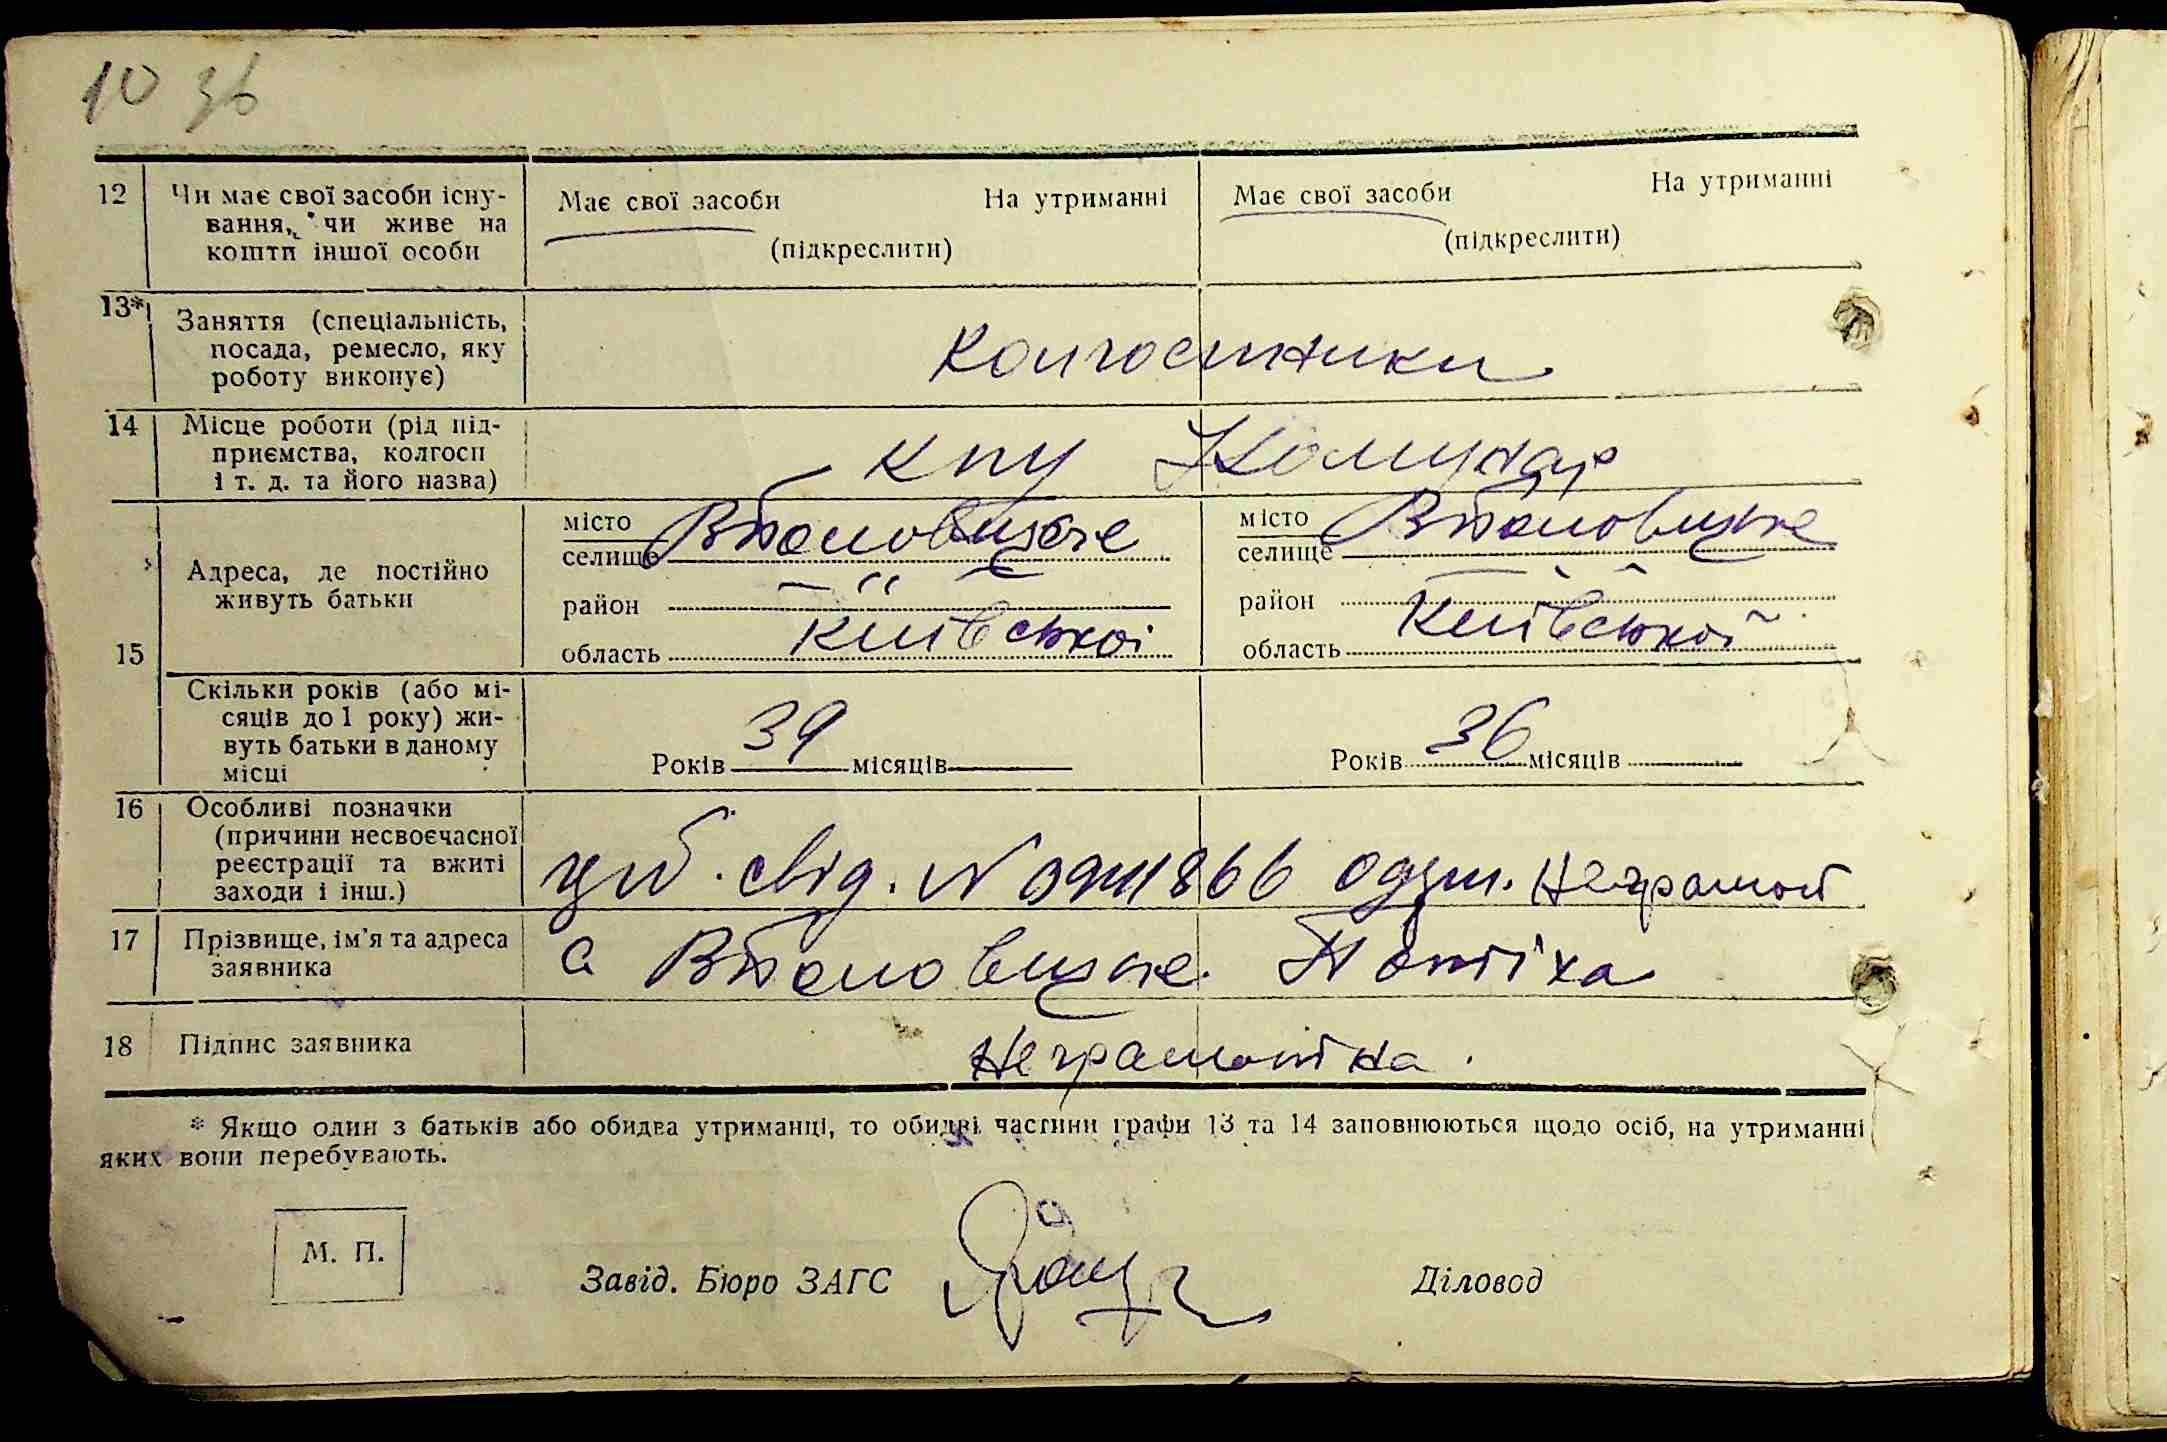 10 зв
12 Чи має свої засоби існу- Має свої засоби На утриманні Має свої засоби На утриманні
вання, чи живе на
кошти іншої особи (підкреслити) (підкреслити)
13* Заняття (спеціальність,
посада, ремесло, яку Колгоспники
роботу виконує)
14 Місце роботи (рід під-
приємства, колгосп Комунар
і т. д. та його назва)
місто місто
селище селище
Адреса, де постійно
живуть батьки
район — " — район — " —
15 область Київської область Київської
Скільки років (або мі-
сяців до 1 року) жи-
вуть батьки в даному Років 39 місяців Років 36 місяців
місці
16 Особливі позначки
(причини несвоєчасної
реєстрації та вжиті свід. N
заходи і інш.)
17 Прізвище, ім'я та адреса с
заявника
18 Підпис заявника Неграмотна.
* Якщо один з батьків або обидва утриманці, то обидві частини графи 13 та 14 заповнюються щодо осіб, на утриманні
яких вони перебувають.
М. П.
Завід. Бюро ЗАГС Діловод